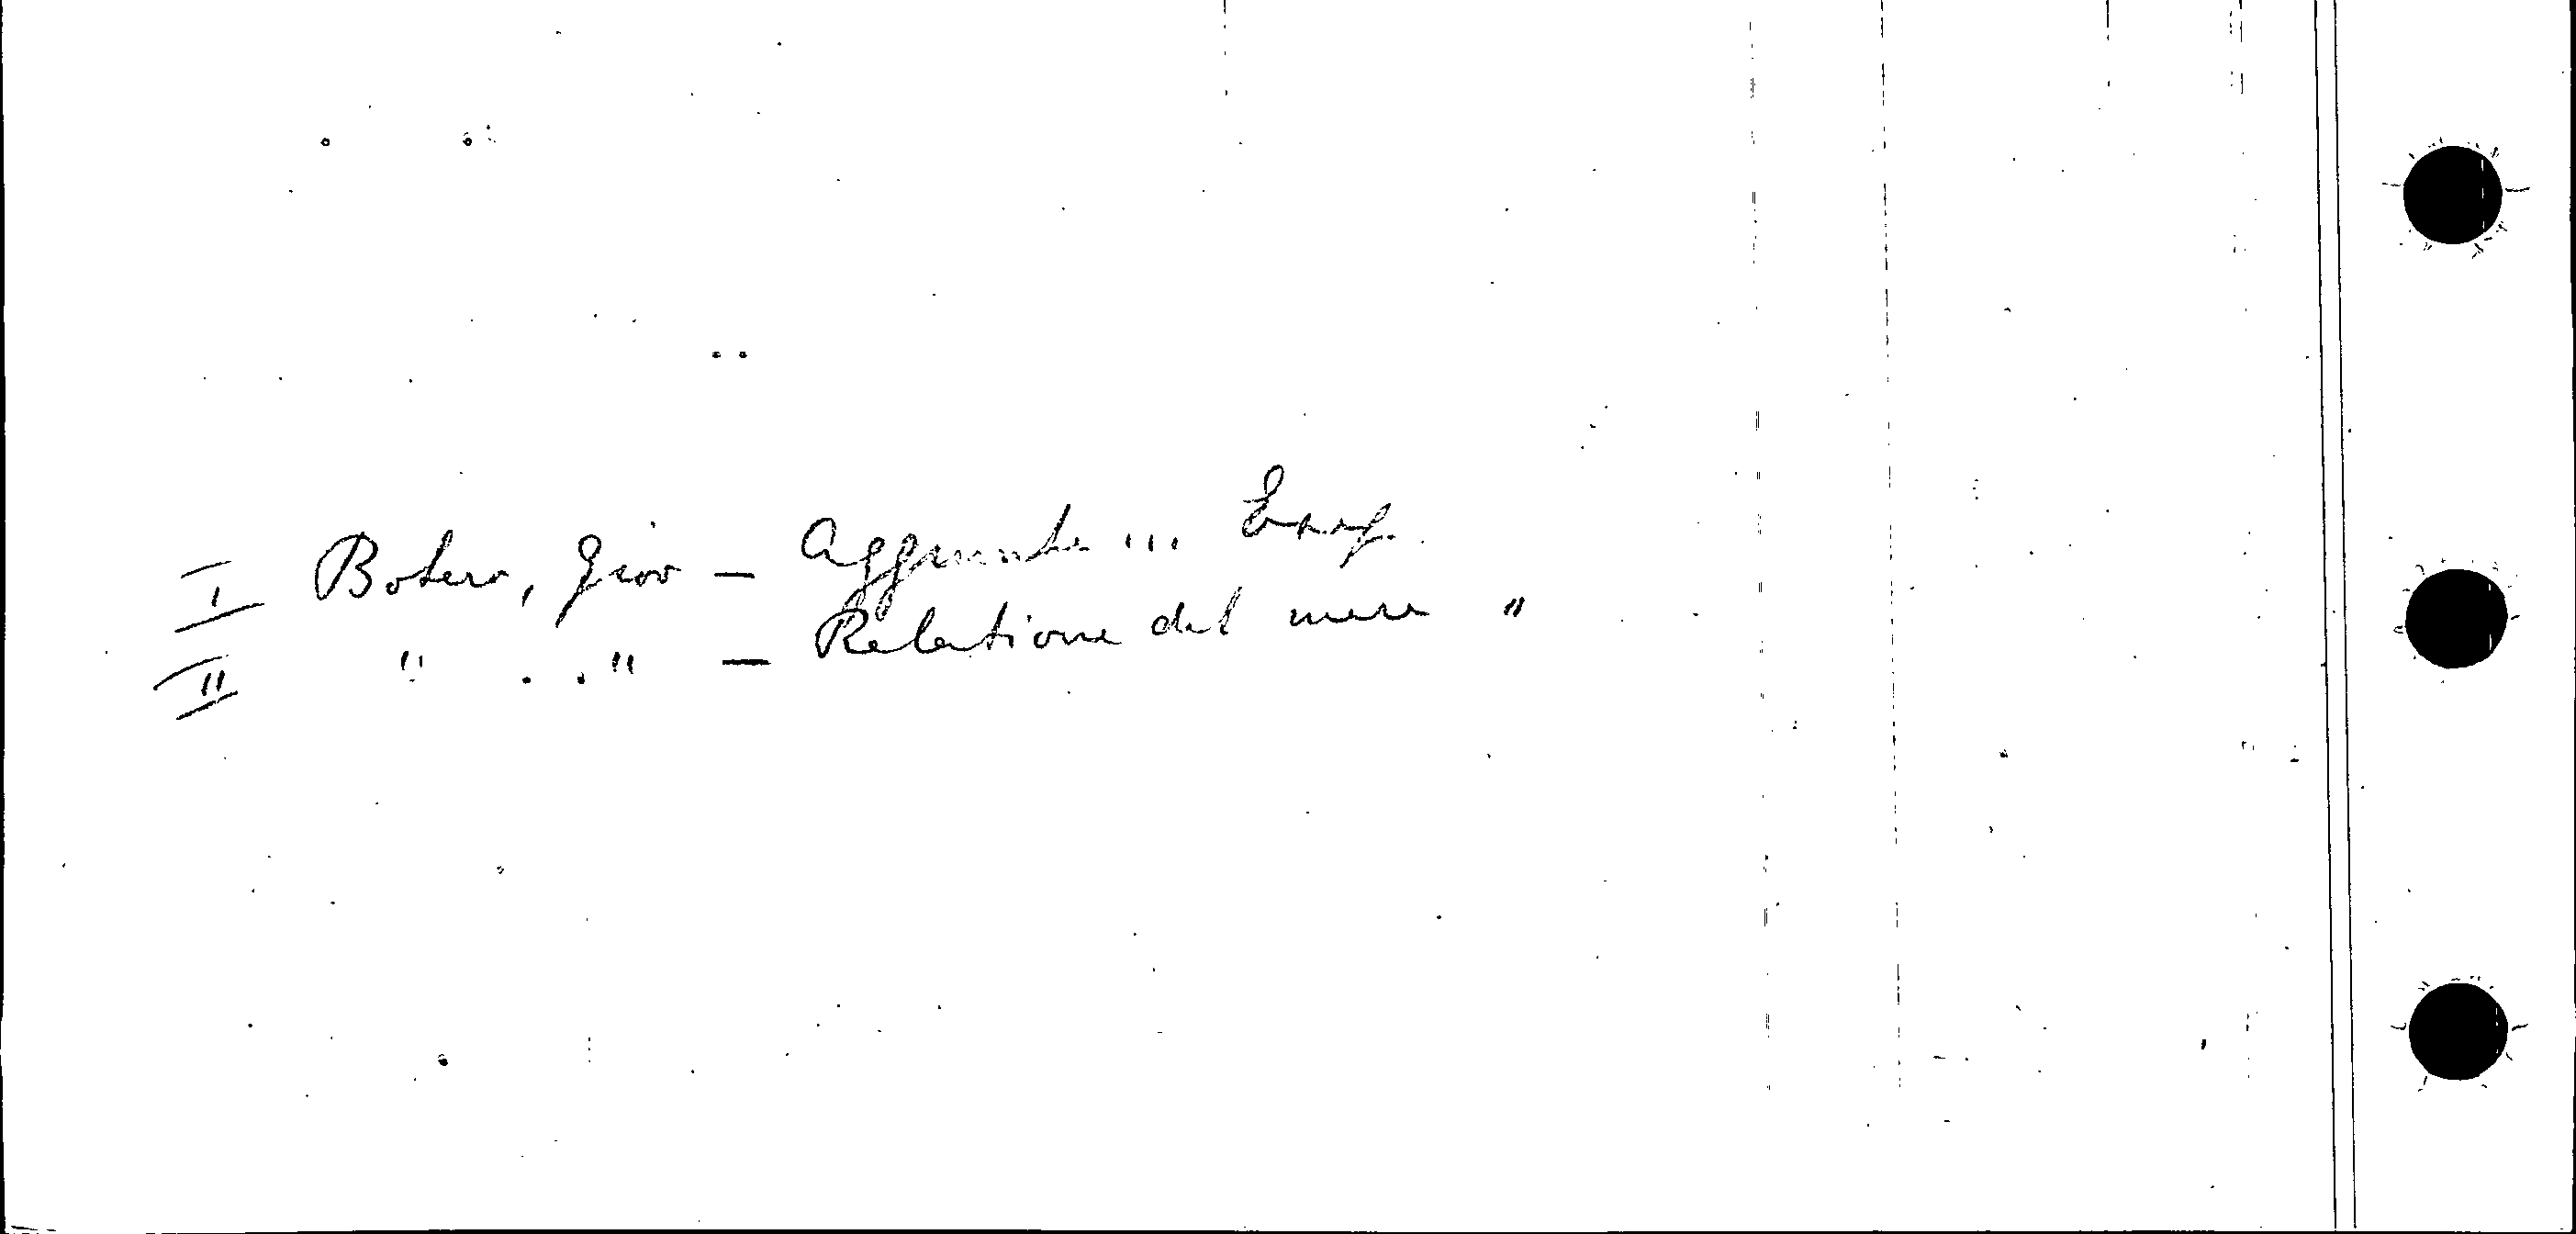 I Botero, Giov — Aggiunte ...
II " " — Relatione del mare "